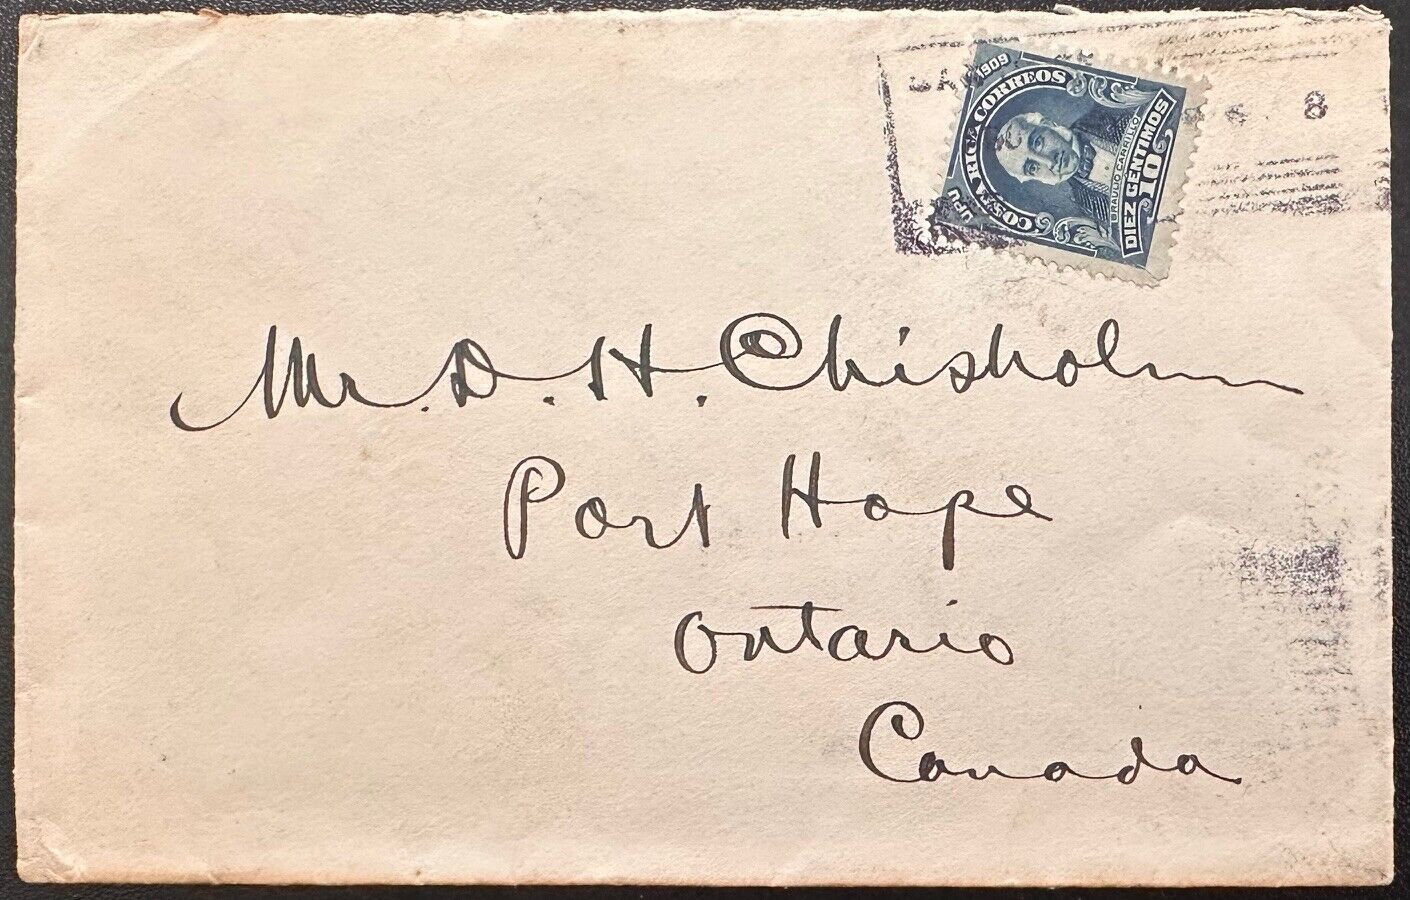 1909
COSTA RICA CORREOS
UPU
BRAULIO CARRILLO
DIEZ CENTIMOS
10
8
Mr. D. H. Chisholm
Port Hope
Ontario
Canada